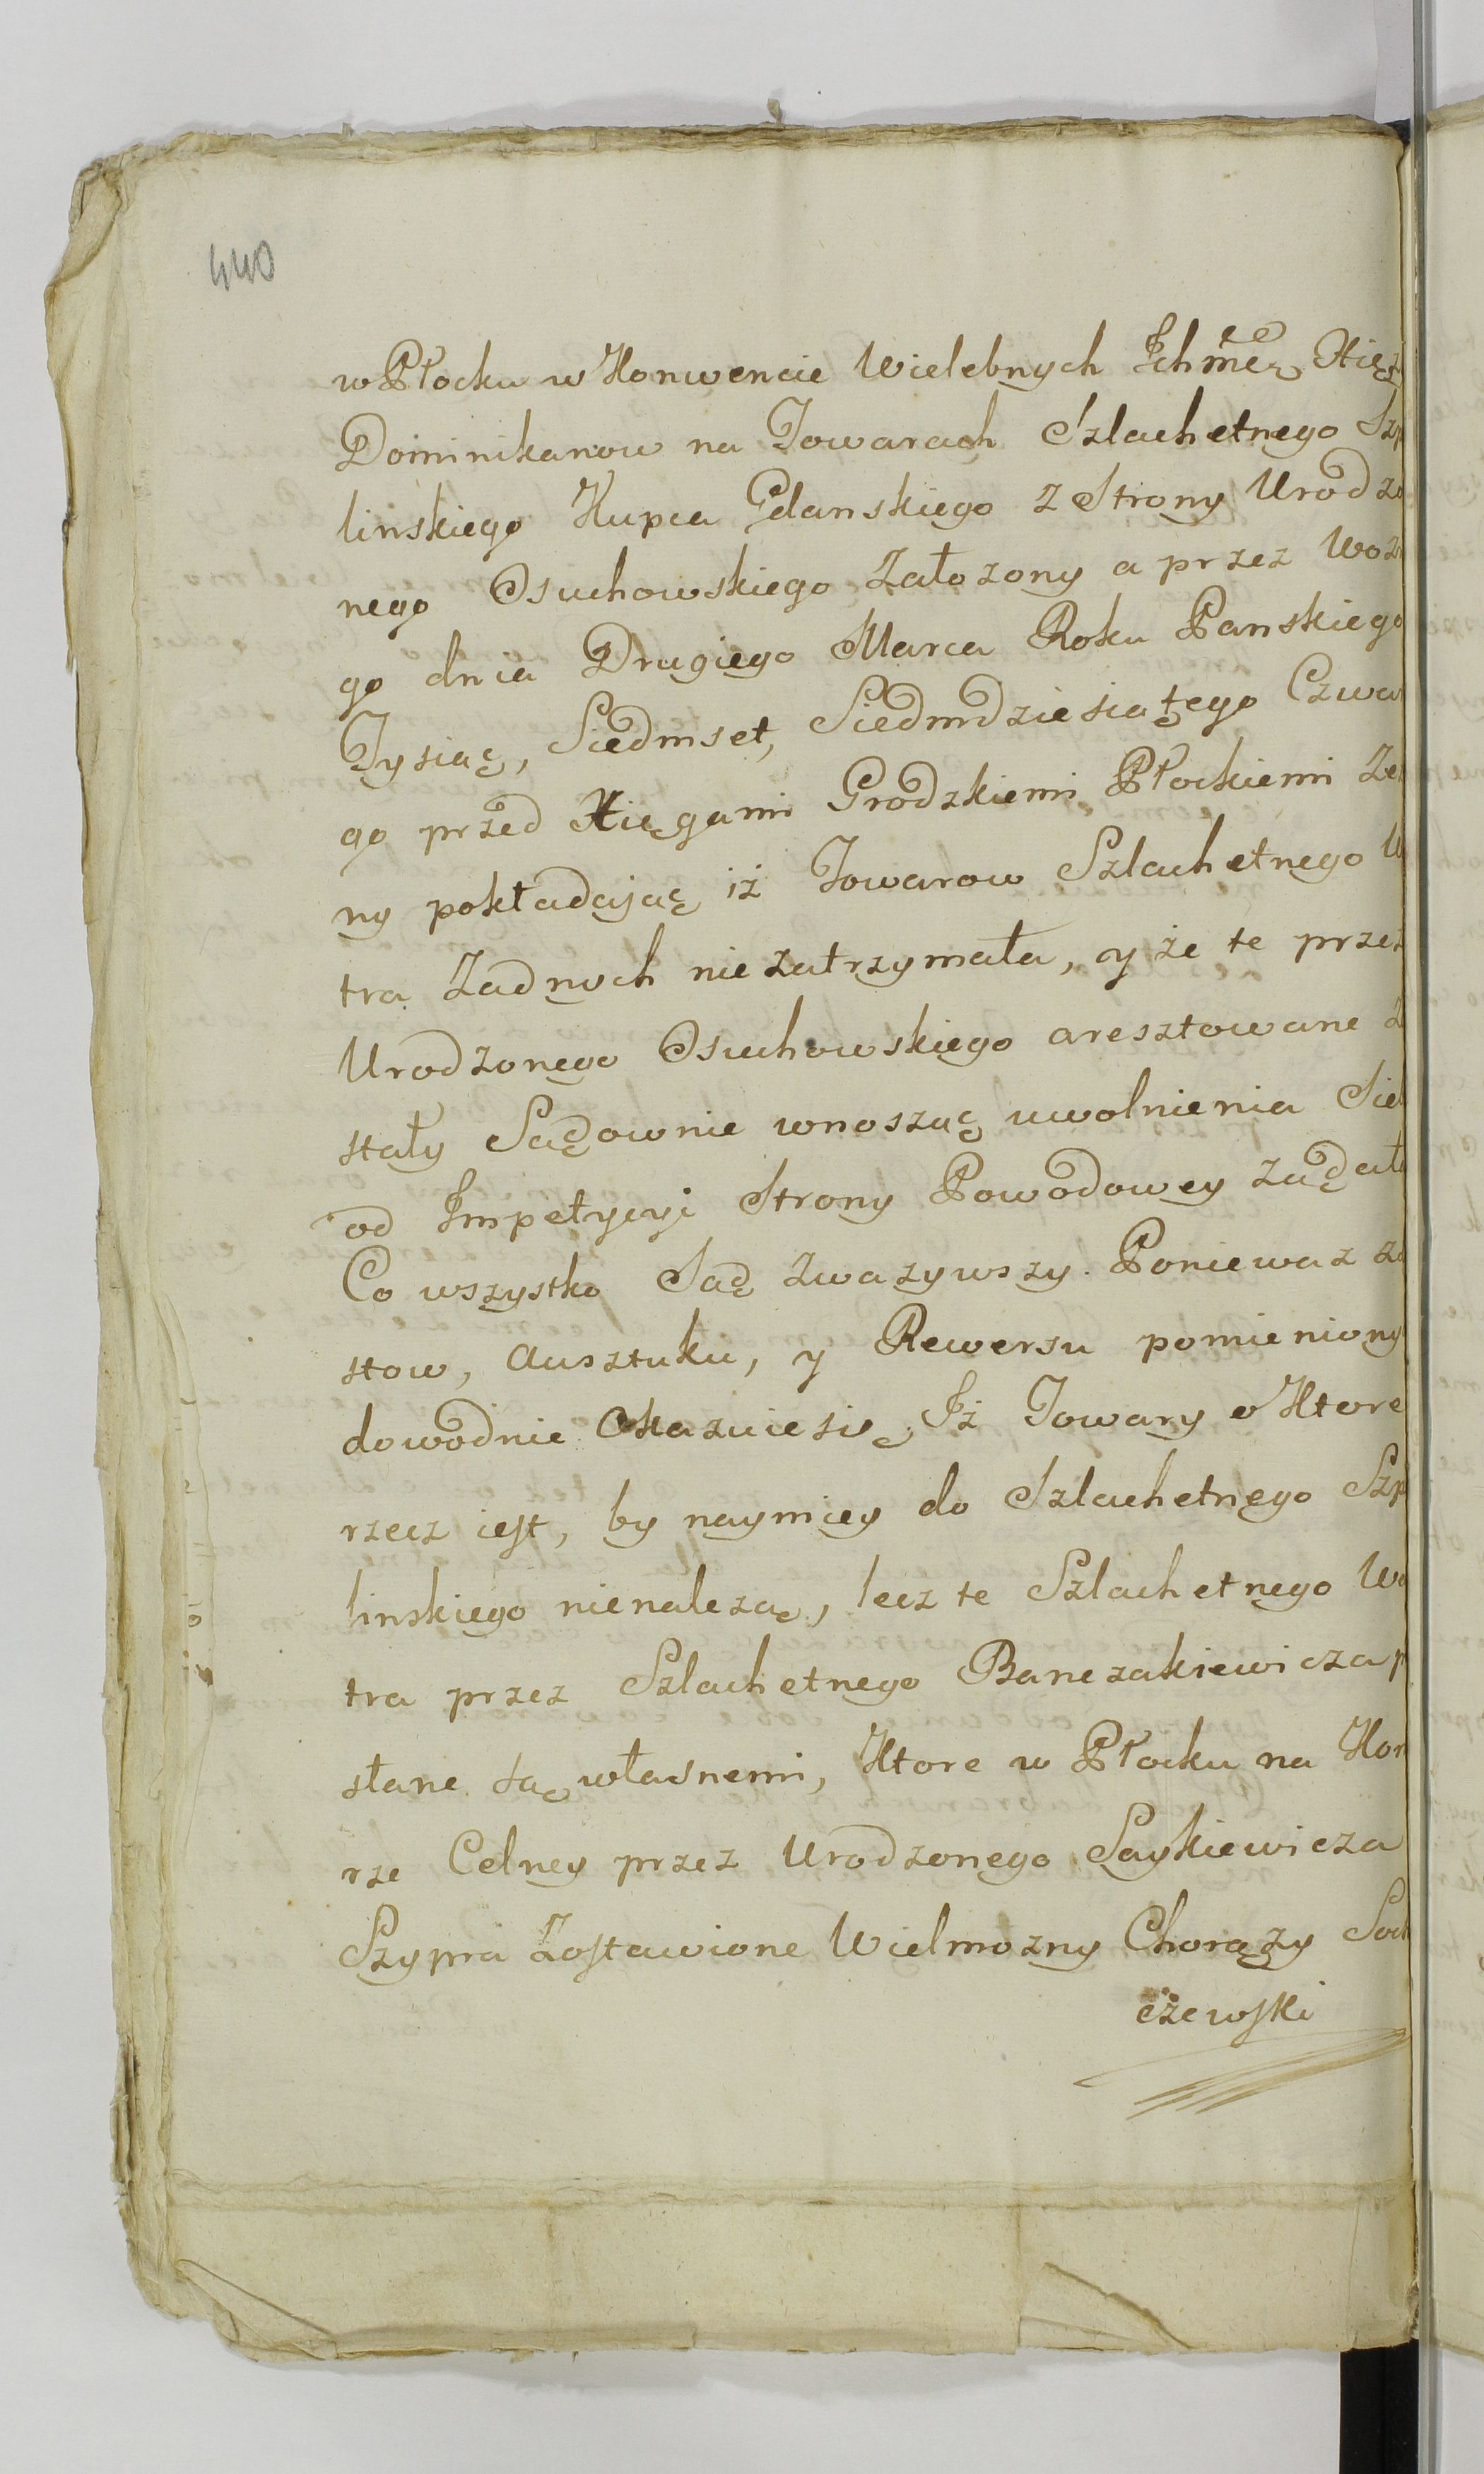 440
w Płocku w Konwencie Wielebnych Ichmę Xię
Dominikanow na Towarach Szlachetnego Szp
linskiego Kupca Gdanskiego z Strony Urodzo
nego Osuchowskiego Założony a przez Wozn
go dnia Drugiego Marca Roku Panskiego
Tysiąc, Siedmset, Siedmdziesiątego Czwar
go przed Xięgami Grodzkiemi Płockiemi Ze
ny pokładając iż Towarow Szlachetnego W
tra Zadnych niezatrzymała, y że te przez
Urodzonego Osuchowskiego aresztowane z
stały Sądownie wnosząc uwolnienia Sieb
od Impetycyi Strony Powodowey żądała
Co wszystko Sąd zważywszy. Ponieważ z
stow, Ausztuku, y Rewersu pomieniony
dowodnie Okazuie się, Iż Towary o Ktore
rzecz iest, by naymiey do Szlachetnego Szp
linskiego nienależą, lecz te Szlachetnego Wa
tra przez Szlachetnego Banczakiewicza p
słane są własnemi, Ktore w Płocku na Kom
rze Celney przez Urodzonego Saykiewicza
Szypra Zostawione Wielmozny Chorąży Soch
czewski